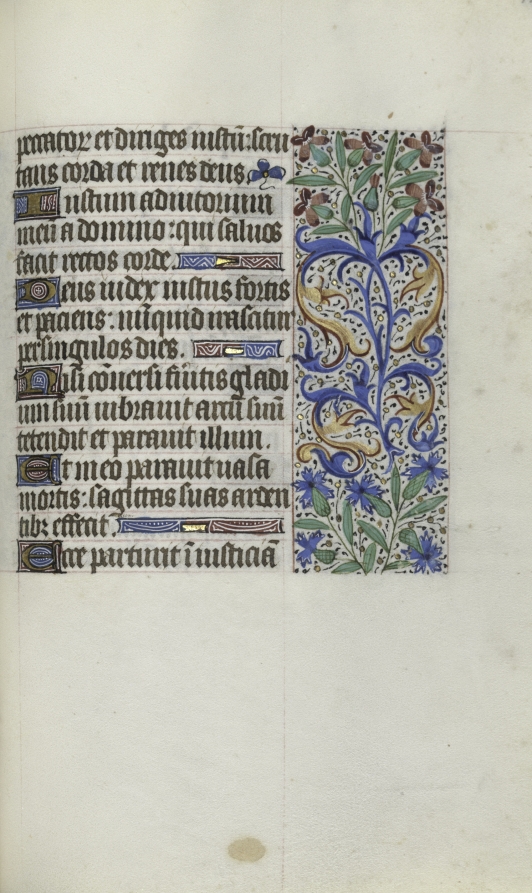 peccator et diriges iustũ: scru
tans corda et renes deus
Iustum adiutorium
meũ a domino: qui saluos
facit rectos corde.
Deus iudex iustus fortis
et paciens: nũquid irascitur
per singulos dies.
Nisi cõuersi fuitis gladi
um suũ uibrauit arcũ suũ
tetendit et parauit illum.
Et in eo parauit uasa
mortis: sagittas suas arden
tibꝫ effecit.
Ecce parturit ĩiusticiã